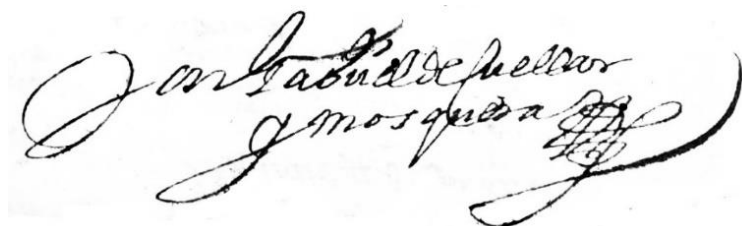 Don Gabriel de Cuellar
y mosquera